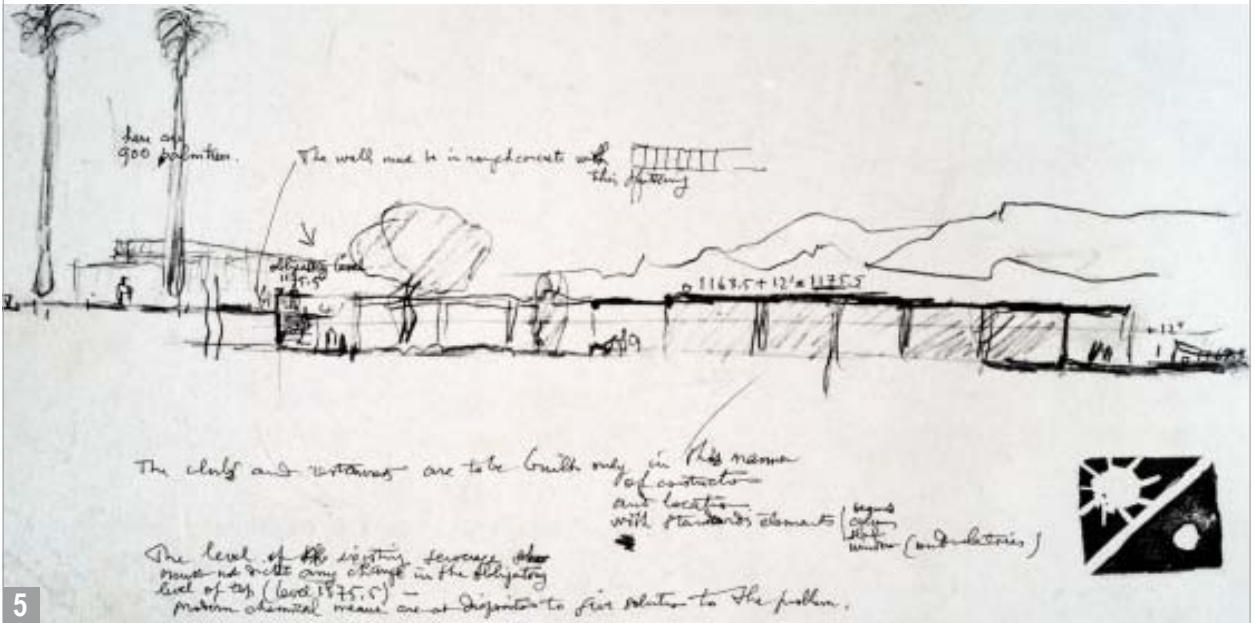 here are
900 palmtrees.
The wall must be in rough concrete with
this patterning
obligatory level
1175.5
1163.5 + 12' = 1175.5
+12'
The clubs and are to be built only in this manner
of construction
and location
with standards elements (
window (ondulatories)
The level of the existing sewerage
must not dictate any change in the obligatory
level of top (level 1175.5) –
modern chemical means are at disposition to give solution to the problem.
5